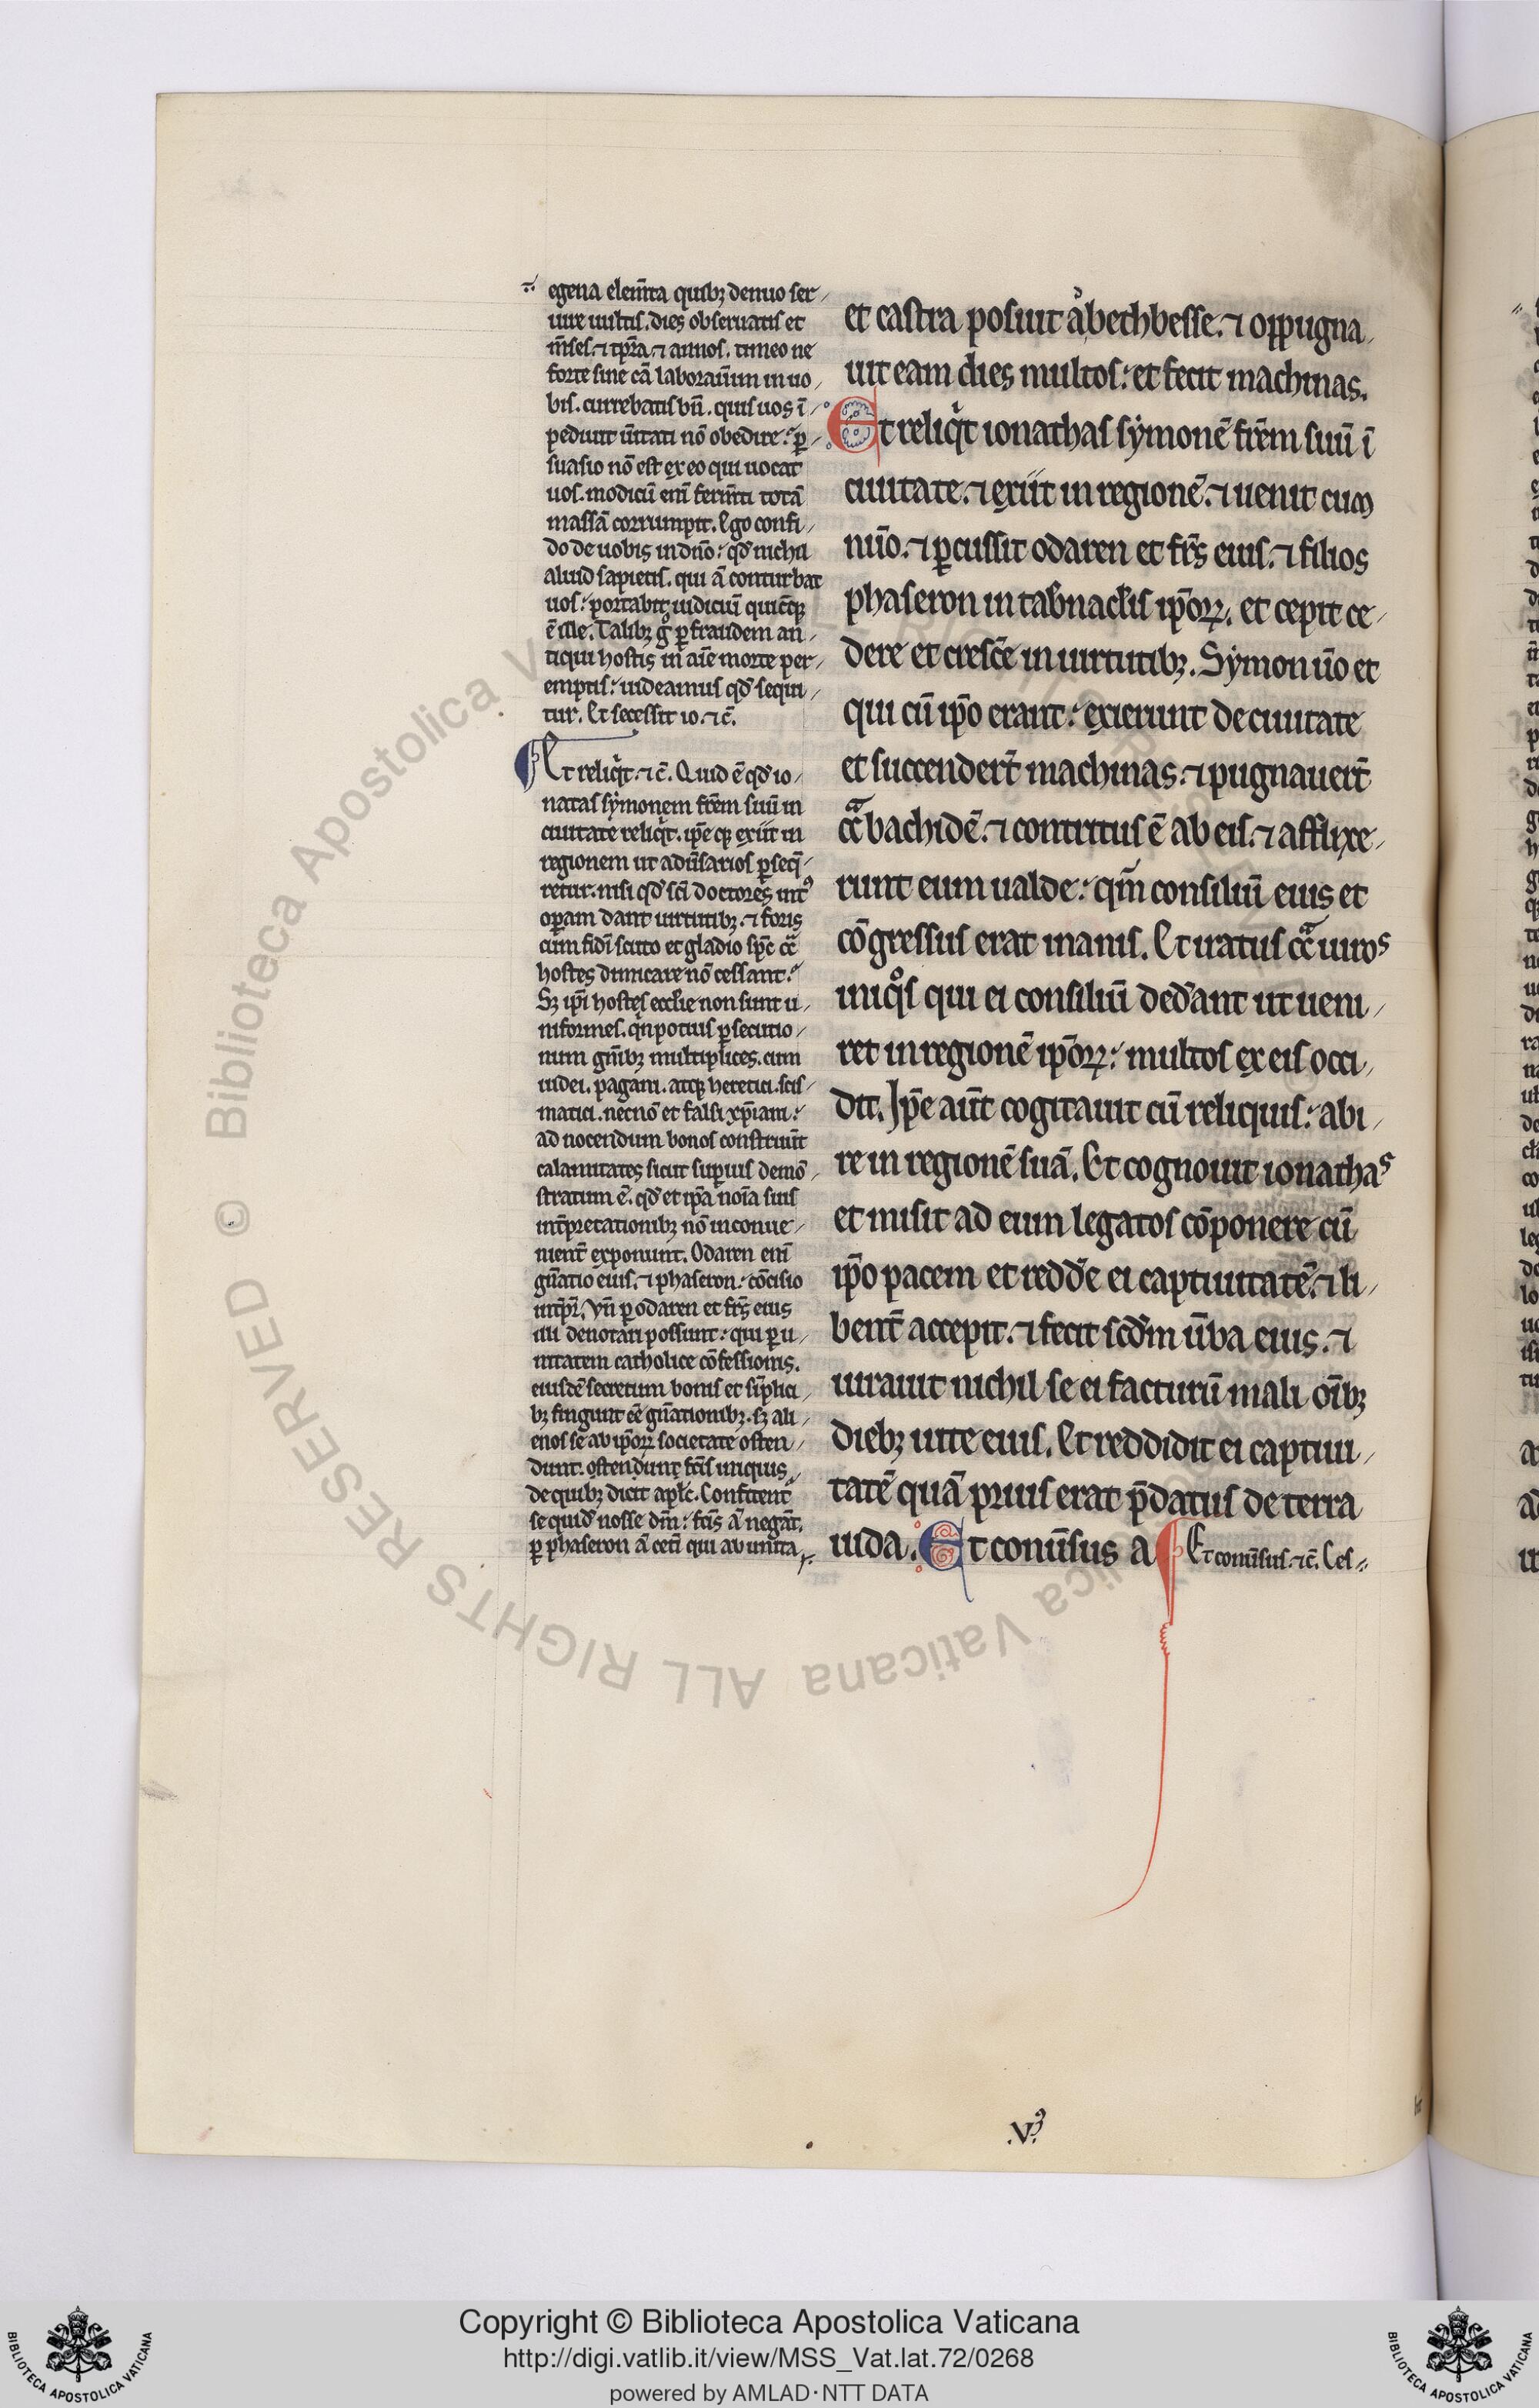 egena elem̄ta quibꝫ denuo ser⸗
uire uultis. dies obseruatis et
m̄ses. ⁊ tp̄ra. ⁊ annos. timeo ne
forte sine cā laborauerim in uo⸗
bis. currebatis bn̄. quis uos ī⸗
pediuit ūitati nō obedire. ꝑ⸗
suasio nō est ex eo qui uocat
uos. modicū enī ferm̄ti totā
massā corrumpit. Ego confi⸗
do de uobis in dn̄o. qd̄ nichil
aliud sapietis. qui ā conturbat
uos. portabit iudiciū quicūqꝫ
ē ille. Talibꝫ gͦ ꝑ fraudem an⸗
tiqui hostis in aīe morte per⸗
emptis. uideamus qd̄ sequi⸗
tur. Et secessit io. ⁊ c̄.
¶ Et reliqͥt. ⁊ c̄. Quid ē qd̄ io⸗
natas sẏmonem frēm suū in
ciuitate reliqͥt. ip̄e qꝫ exiit in
regionem ut adūsarios ꝑseq̄⸗
retur. nisi qd̄ sc̄i doctores intꝰ
oꝑam dant uirtutibꝫ. ⁊ foris
cum fidī scuto et gladio sp̄c cͣ
hostes dimicare nō cessant.
Sꝫ ip̄i hostes ecclie non sunt u⸗
niformes. qͥn potius ꝑsecutio⸗
num gn̄ibꝫ multiplices. cum
iudei. pagani. atqꝫ heretici. scis⸗
matici. necnō et falsi xp̄iani.
ad nocendum bonos construūt
calamitates sicut suꝑius demō⸗
stratum ē. qd̄ et ip̄a noīa suis
int̄pretationibꝫ nō inconue⸗
nient̄ exponunt. Odaren enī
gn̄atio eius. ⁊ phaseron. cōcisio
int̄p̄r. Vn̄ ꝑ odaren et frēs eius
illi denotari possunt. qui ꝑ u⸗
nitatem catholice cōfessionis.
eiusdē secretum bonis et simplici⸗
bꝫ fingunt eē gn̄ationibꝫ. sꝫ ali⸗
enos se ab ip̄oꝝ societate osten⸗
dunt. ostendunt fc̄is iniquis
de quibꝫ dicit apl̄c. Confitent̄
se quid̄ nosse dm̄. fc̄is ā negāt.
ꝑ phaseron ā ceti qui ab unita⸗
et castra posuit aͨbethbesse. ⁊ oppugna⸗
uit eam dies multos. et fecit machinas.
Et reliqͥt ionathas sẏmonē frēm suū ī
ciuitate. ⁊ exiit in regionē. ⁊ uenit cum
nūo. ⁊ ꝑcussit odaren et frēs eius. ⁊ filios
phaseron in tab̄naclis ip̄oꝝ. et cepit ce⸗
dere et crescē in uirtutibꝫ. Sẏmon ūo et
qui cū ip̄o erant. exierunt de ciuitate
et succendert̄ machinas. ⁊ pugnauert̄
cͣ bachidē. ⁊ contritus ē ab eis. ⁊ afflixe⸗
runt eum ualde. qm̄ consiliū eius et
cōgressus erat inanis. Et iratus cͣ uiros
iniqͦs qui ei consiliū ded̄ant ut ueni⸗
ret in regionē ip̄oꝝ. multos ex eis occi⸗
dit. Ip̄e aūt cogitauit cū reliquis. abi⸗
re in regionē suā. Et cognouit ionathas
et misit ad eum legatos cōponere cū
ip̄o pacem et redd̄e ei captiuitatē. ⁊ li⸗
bent̄ accepit. ⁊ fecit scd̄m ūba eius. ⁊
iurauit nichil se ei facturū mali oībꝫ
diebꝫ uite eius. Et reddidit ei captiui⸗
tatē quā prius erat p̄datus de terra
iuda. Et conūsus a ¶ Et conūsus. ⁊ c̄. Ces⸗
.Vꝰ.
© Biblioteca Apostolica Vaticana ALL RIGHTS RESERVED
Copyright © Biblioteca Apostolica Vaticana
http://digi.vatlib.it/view/MSS_Vat.lat.72/0268
powered by AMLAD·NTT DATA
BIBLIOTECA APOSTOLICA VATICANA
BIBLIOTECA APOSTOLICA VATICANA